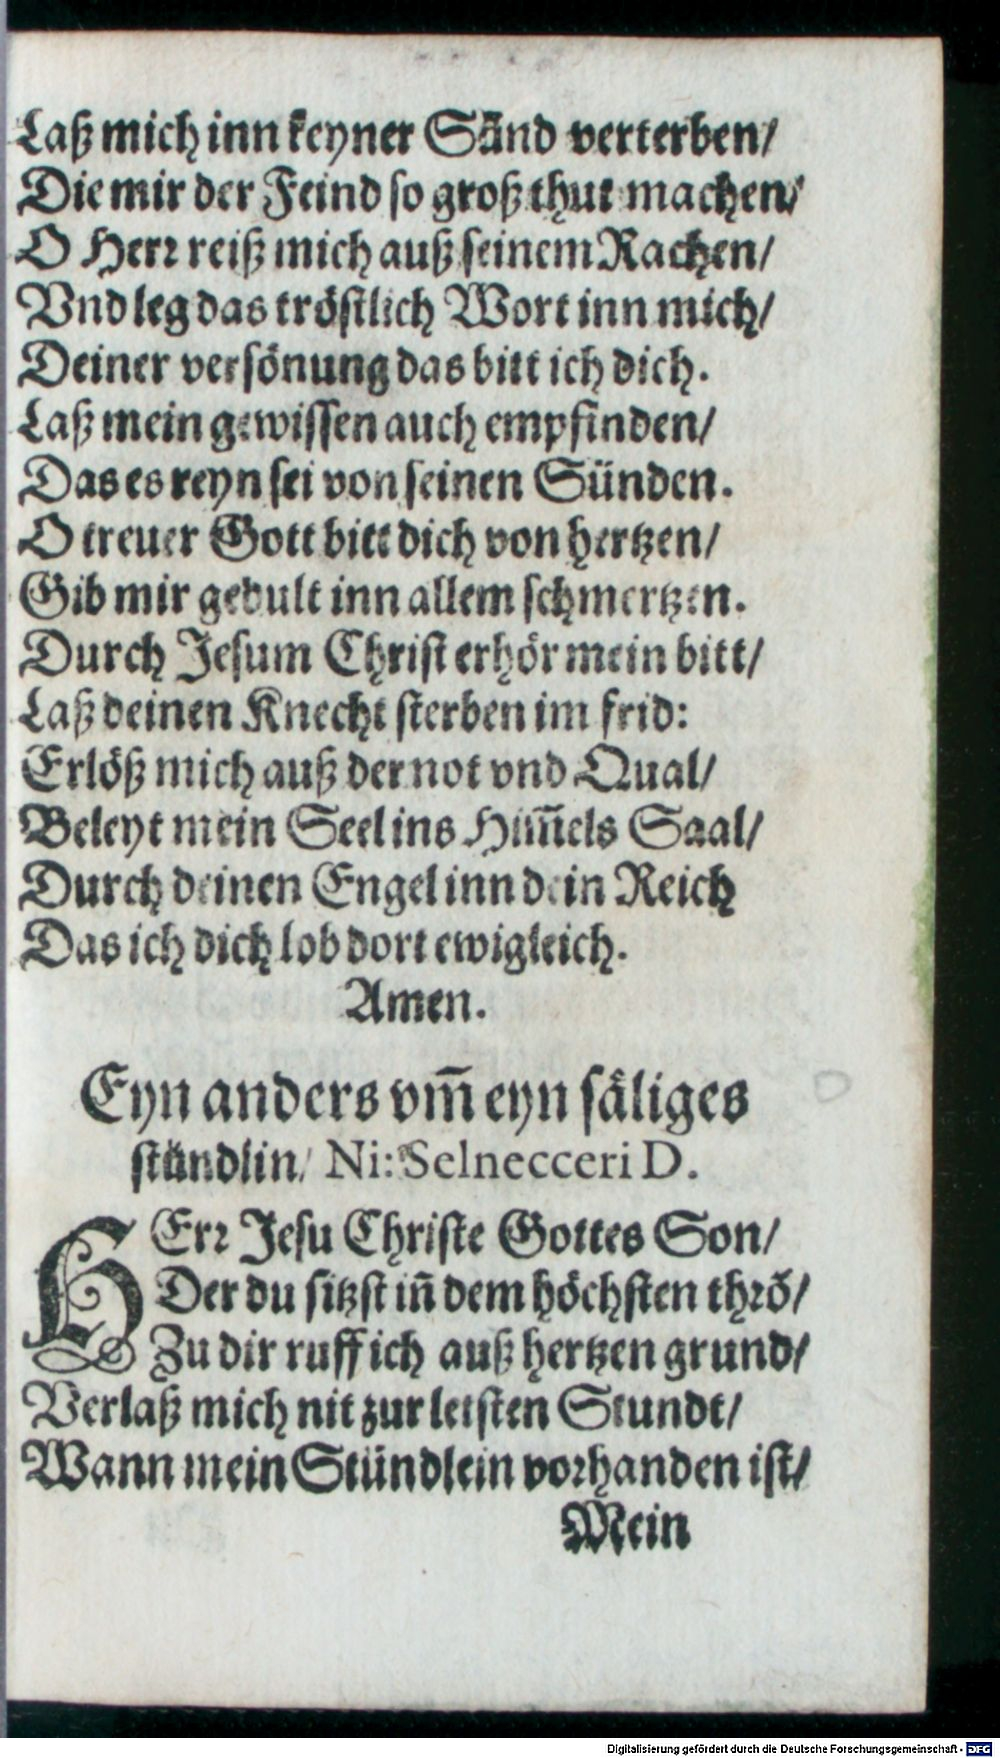 Laß mich inn keyner Sünd verterben/
Die mir der Feind so groß thut machen/
O Herr reiß mich auß seinem Rachen/
Vnd leg das tröstlich Wort inn mich/
Deiner versönung das bitt ich dich.
Laß mein gewissen auch empfinden/
Das es reyn sei von seinen Sünden.
O treuer Gott bitt dich von hertzen/
Gib mir gedult inn allem schmertzen.
Durch Jesum Christ erhör mein bitt/
Laß deinen Knecht sterben im frid:
Erlöß mich auß der not vnd Qual/
Beleyt mein Seel ins Him̃els Saal/
Durch deinen Engel inn dein Reich
Das ich dich lob dort ewigleich.
Amen.
Eyn anders vm̃ eyn säliges
stündlin/ Ni: Selnecceri D.
HErr Jesu Christe Gottes Son/
Der du sitzst iñ dem höchsten thrõ/
Zu dir ruff ich auß hertzen grund/
Verlaß mich nit zur letsten Stundt/
Wann mein Stündlein vorhanden ist/
Mein
Digitalisierung gefördert durch die Deutsche Forschungsgemeinschaft - DFG